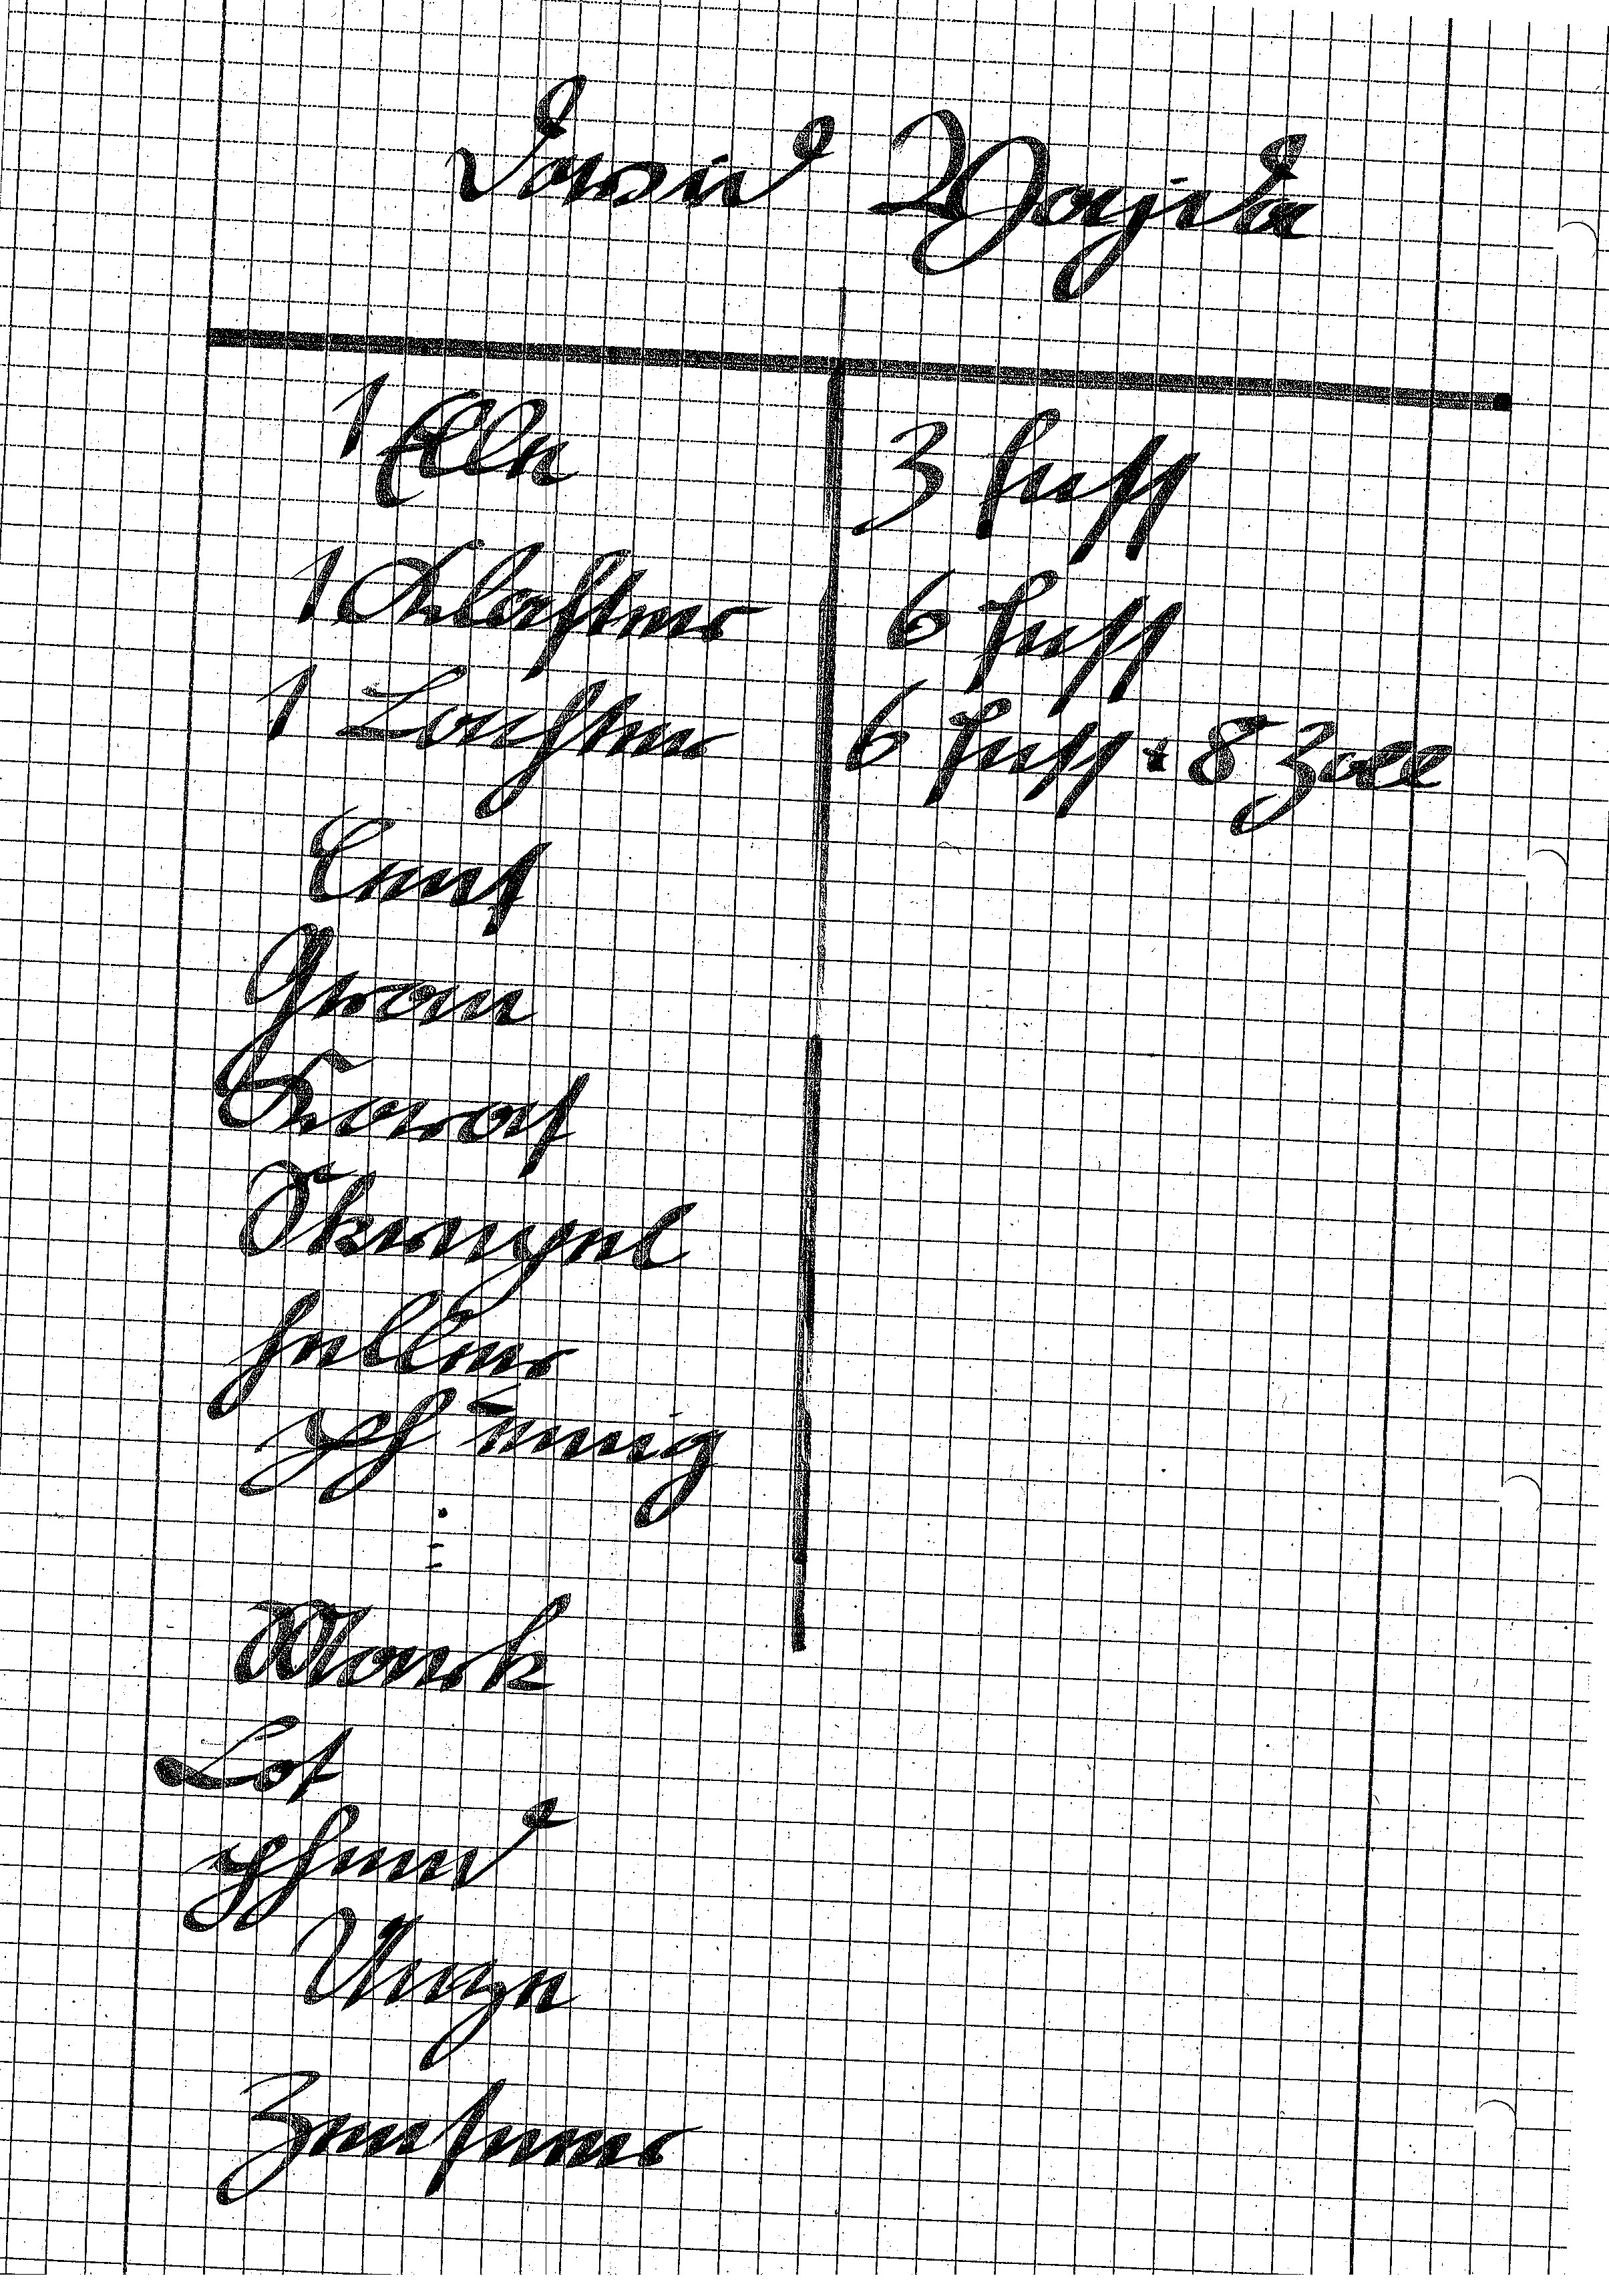 Dawid Wajda
1 Elle 3 Fuss
1 Klafter 6 Fuss
1 Lachter 6 Fuss + 8 Zoll
Cent
Gran
Karat
Skrupel
Heller
Pfennig
Mark
Lot
Pfund
Unze
Zentner